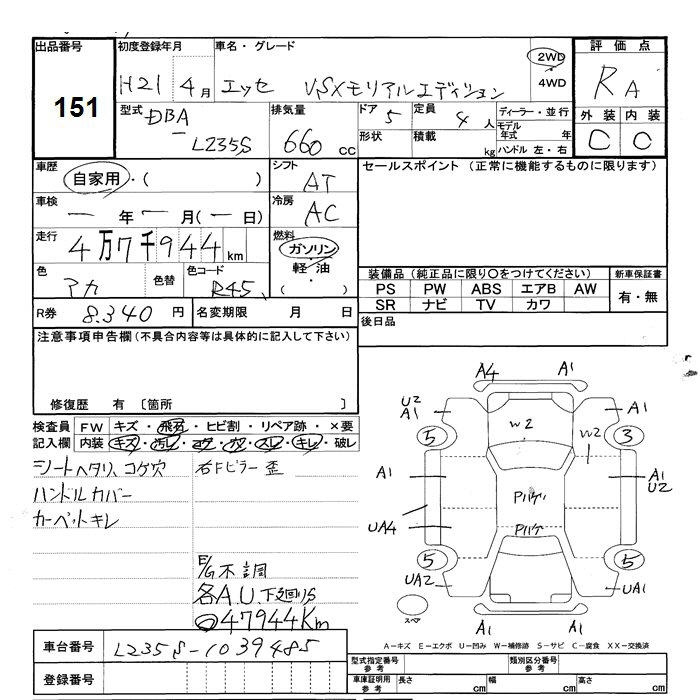 出品番号
151
初度登録年月
H21 4月
車名・グレード
エッセ VSXモリアルエディション
2WD
4WD
評価点
RA
外装 内装
C C
型式
DBA
L235S
排気量
660 cc
ドア 5
定員 4人
形状
積載 kg
ディーラー・並行
モデル年式 年
ハンドル 左・右
車歴
自家用・( )
シフト
AT
セールスポイント (正常に機能するものに限ります)
車検
ー年ー月(ー日)
冷房
AC
走行
4万7千944km
燃料
ガソリン
軽・油
( )
色
アカ
色替
色コード
R45
装備品(純正品に限り○をつけてください)
新車保証書
PS PW ABS エアB AW
有・無
SR ナビ TV カワ
R券 8.340円
名変期限 月 日
後日品
注意事項申告欄(不具合内容等は具体的に記入して下さい)
修復歴 有 〔箇所 〕
検査員記入欄
FW キズ・飛石・ヒビ割・リペア跡・×要
内装 キズ・汚レ・コゲ・穴・スレ・キレ・破レ
シートヘタリ、コゲ穴
右Fピラー歪
ハンドルカバー
カーペットキレ
E/G不調
各A.U.下廻りS
47944Km
A4 A1
U2
A1
W2
A1
5
W2
3
A1
Pハゲ
A1
U2
UA4
Pハゲ
5
5
UA2
UA1
スペア
A1 A1
A−キズ E−エクボ U−凹み W−補修跡 S−サビ C−腐食 XX−交換済
車台番号
L235S-1039485
登録番号
型式指定番号
参考
類別区分番号
参考
車庫証明用
参考
長さ cm
幅 cm
高さ cm